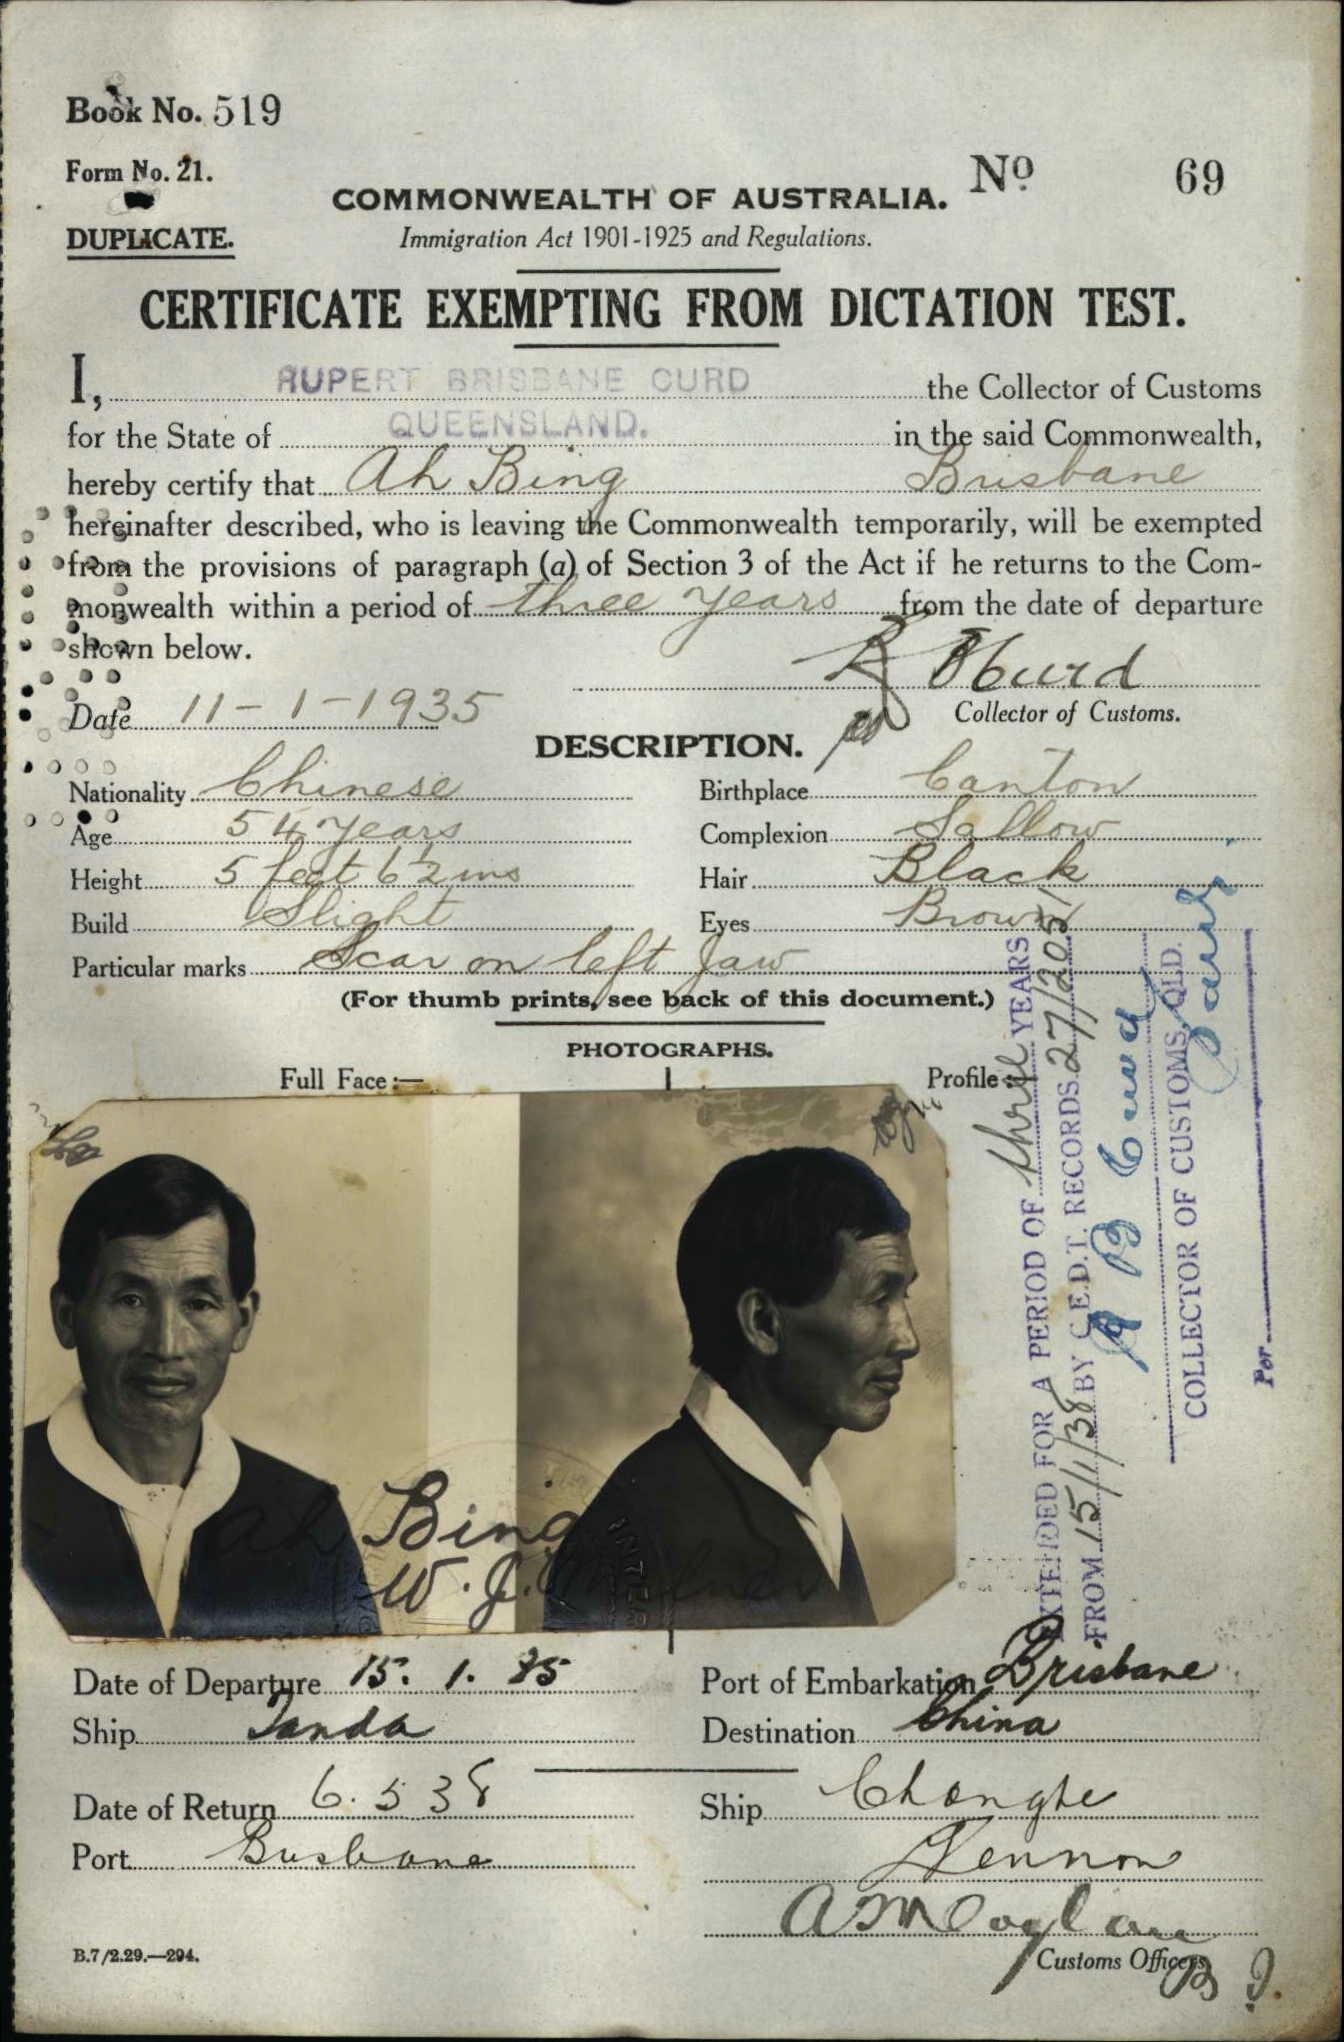 Book No. 519
Form No. 21.
No 69
COMMONWEALTH OF AUSTRALIA.
DUPLICATE.
Immigration Act 1901-1925 and Regulations.
CERTIFICATE EXEMPTING FROM DICTATION TEST.
I, RUPERT BRISBANE CURD the Collector of Customs
for the State of QUEENSLAND. in the said Commonwealth,
hereby certify that Ah Bing Brisbane
hereinafter described, who is leaving the Commonwealth temporarily, will be exempted
from the provisions of paragraph (a) of Section 3 of the Act if he returns to the Com-
monwealth within a period of three years from the date of departure
shown below.
R B Curd
Date 11-1-1935
Collector of Customs.
DESCRIPTION.
Nationality Chinese Birthplace Canton
Age 54 years Complexion Sallow
Height 5 feet 6½ ins Hair Black
Build Slight Eyes Brown
Particular marks Scar on left Jaw
(For thumb prints, see back of this document.)
PHOTOGRAPHS.
Full Face:— Profile:—
Ah Bing
W. J.
EXTENDED FOR A PERIOD OF three YEARS
FROM 15/1/38 BY C.E.D.T. RECORDS 27/205
R B Curd
COLLECTOR OF CUSTOMS, QLD.
Per
Date of Departure 15. 1. 35 Port of Embarkation Brisbane
Ship Tanda Destination China
Date of Return 6. 5 38 Ship Changte
Port Brisbane
Customs Officers
B.7/2.29.—294.